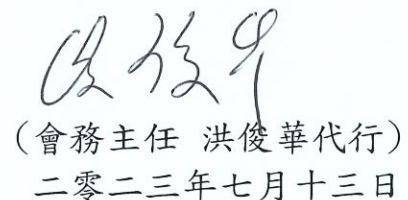 洪俊华
（會務主任 洪俊華代行）
二零二三年七月十三日